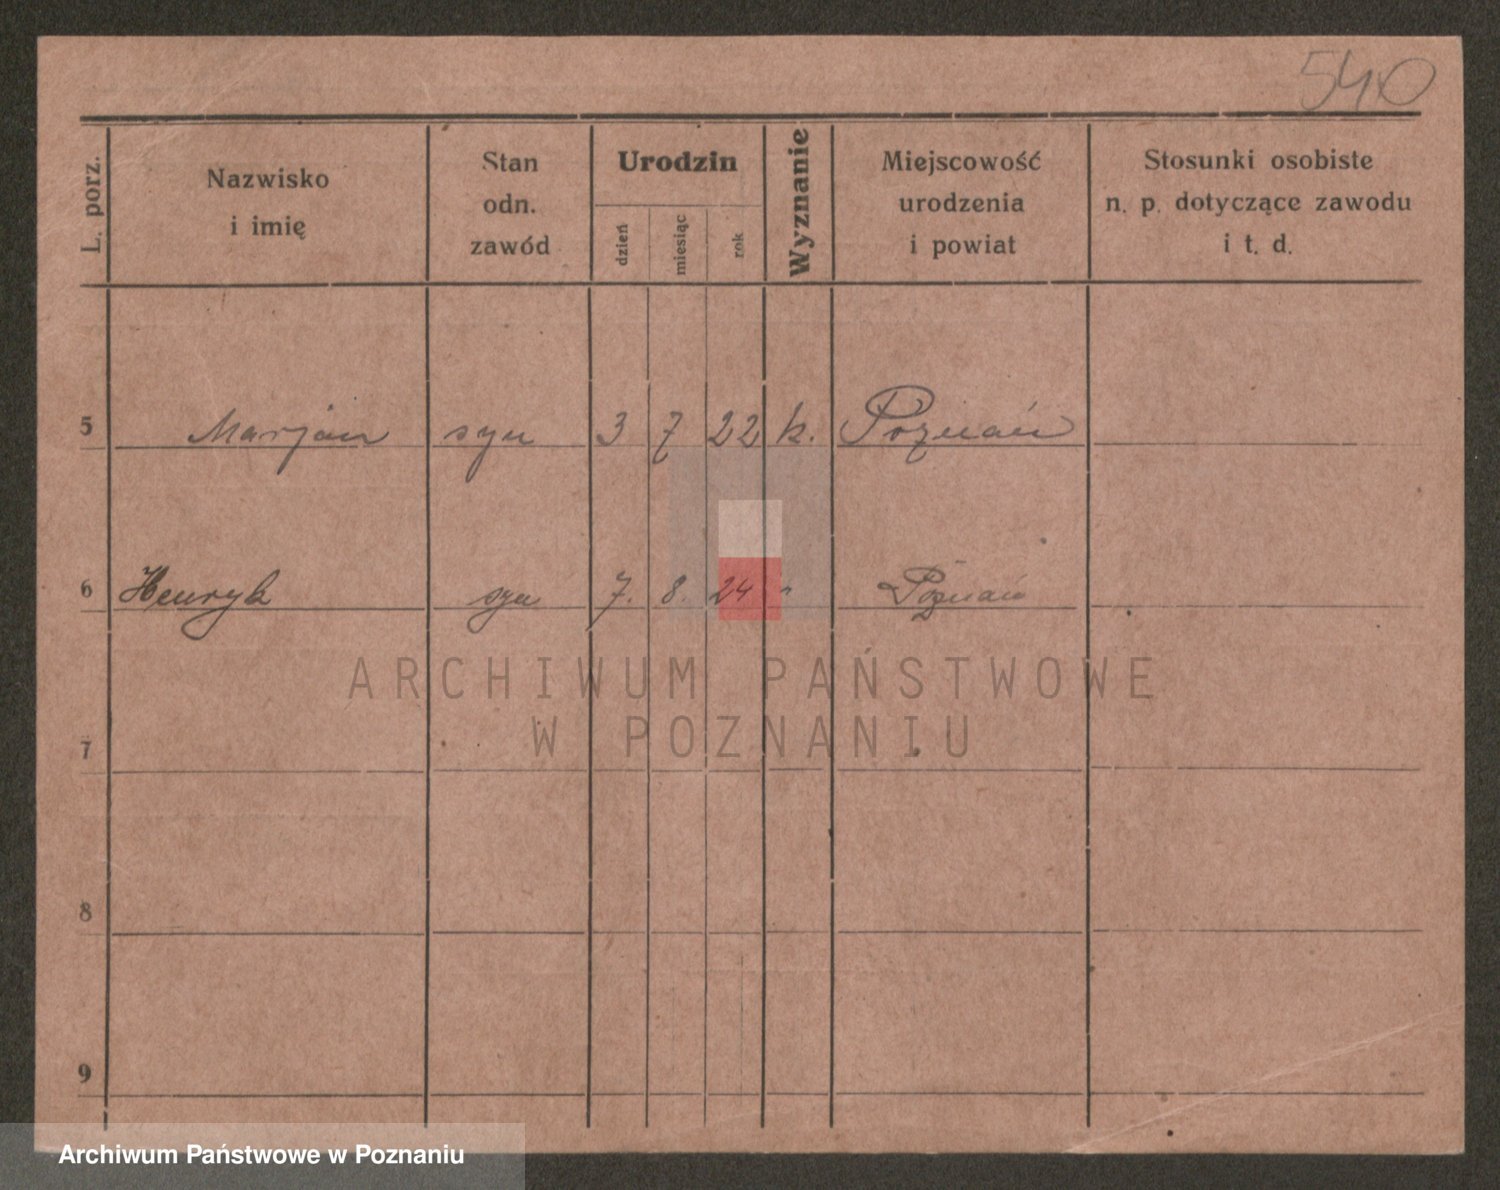 540
L. porz.
Nazwisko
i imię
Stan
odn.
zawód
Urodzin
dzień
miesiąc
rok
Wyznanie
Miejscowość
urodzenia
i powiat
Stosunki osobiste
n. p. dotyczące zawodu
i t. d.
5 Marjan syn 3 7 22 k. Poznań
6 Henryk syn 7. 8. 24 " Poznań
ARCHIWUM PAŃSTWOWE
W POZNANIU
7
8
9
Archiwum Państwowe w Poznaniu